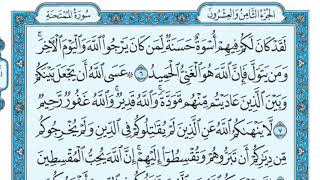 الجزء الثامن والعشرون
سورة الممتحنة
لَقَدْ كَانَ لَكُمْ فِيهِمْ أُسْوَةٌ حَسَنَةٌ لِّمَن كَانَ يَرْجُوا۟ ٱللَّهَ وَٱلْيَوْمَ ٱلْءَاخِرَ ۚ
وَمَن يَتَوَلَّ فَإِنَّ ٱللَّهَ هُوَ ٱلْغَنِىُّ ٱلْحَمِيدُ ٦ عَسَى ٱللَّهُ أَن يَجْعَلَ بَيْنَكُمْ
وَبَيْنَ ٱلَّذِينَ عَادَيْتُم مِّنْهُم مَّوَدَّةً ۚ وَٱللَّهُ قَدِيرٌ ۚ وَٱللَّهُ غَفُورٌ رَّحِيمٌ ٧
لَّا يَنْهَىٰكُمُ ٱللَّهُ عَنِ ٱلَّذِينَ لَمْ يُقَٰتِلُوكُمْ فِى ٱلدِّينِ وَلَمْ يُخْرِجُوكُم
مِّن دِيَٰرِكُمْ أَن تَبَرُّوهُمْ وَتُقْسِطُوٓا۟ إِلَيْهِمْ ۚ إِنَّ ٱللَّهَ يُحِبُّ ٱلْمُقْسِطِينَ